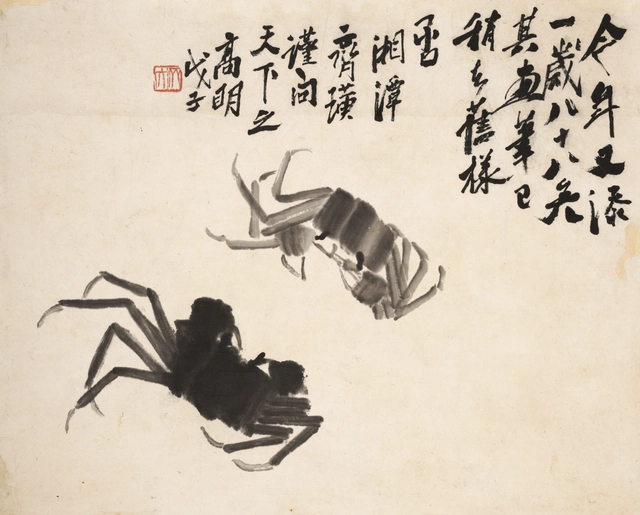 今年又添
一歲八十八矣
其畫筆已
稍去舊樣
否
湘潭
齊璜
謹問
天下之
高明
戊子